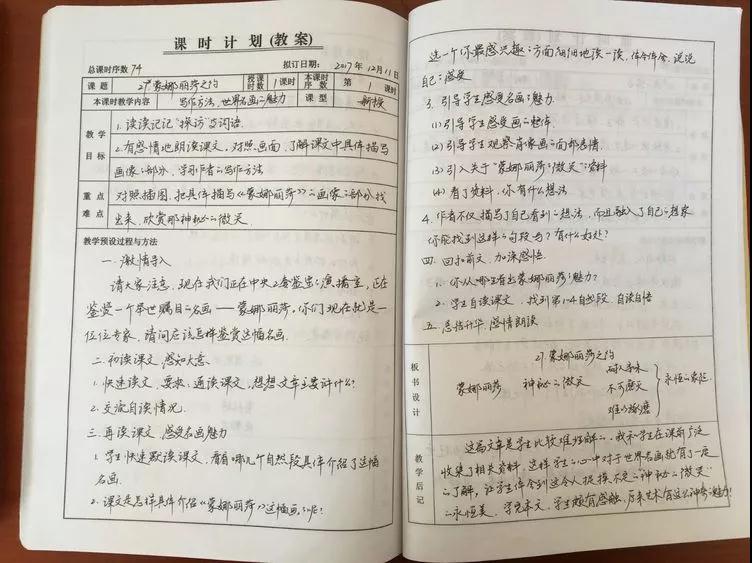 课时计划(教案)
总课时序数 74 拟订日期: 2017年12月11日
课题 27* 蒙娜丽莎之约 授课时数 1课时 本课时序数 第1课时
本课时教学内容 写作方法,世界名画之魅力 课型 新授
教学目标
1.读读记记"探访"等词语.
2.有感情地朗读课文,对照画面,了解课文中具体描写
画像的部分,学习作者的写作方法
重点难点
对照插图,把具体描写《蒙娜丽莎》的画像的部分找
出来,欣赏那神秘的微笑
教学预设过程与方法
一.激情导入
请大家注意,现在我们正在中央2套鉴宝的演播室,正在
鉴赏一个举世瞩目的名画——蒙娜丽莎,你们现在就是一
位位专家,请问应该怎样鉴赏这幅名画.
二.初读课文,感知大意
1.快速读文,要求:通读课文,想想文章主要讲什么?
2.交流自读情况.
三.再读课文,感受名画魅力
1.学生快速默读课文,看有哪几个自然段具体介绍了这幅
名画.
2.课文是怎样具体介绍《蒙娜丽莎》这幅画的呢?
选一个你最感兴趣的方面细细地读一读,体会体会,说说
自己的感受
3.引导学生感受名画的魅力.
(1)引导学生感受画的整体.
(2)引导学生观察肖像画的面部表情.
(3)引入关于"蒙娜丽莎的微笑"资料
(4)看了资料,你有什么想法
4.作者不仅描写了自己看到的想法,而且融入了自己的想象
你能找到这样的句段吗?有什么好处?
四.回扣前文,加深感悟
1.你从哪里看出蒙娜丽莎的魅力?
2.学生自读课文,找到第1-4自然段,自读自悟
五.总结升华,感情朗读
板书设计
27 蒙娜丽莎之约
蒙娜丽莎 神秘的微笑 耐人寻味 不可磨灭 难以捉摸 永恒的象征
教学后记
这篇文章是学生比较难理解的,我和学生在课前广泛
收集了相关资料,这样学生心中对于世界名画就有了一定
的了解,让学生体会到这令人捉摸不定的神秘的微笑
的永恒美.学完本文,学生颇有感触,原来艺术有这么神奇的魅力!